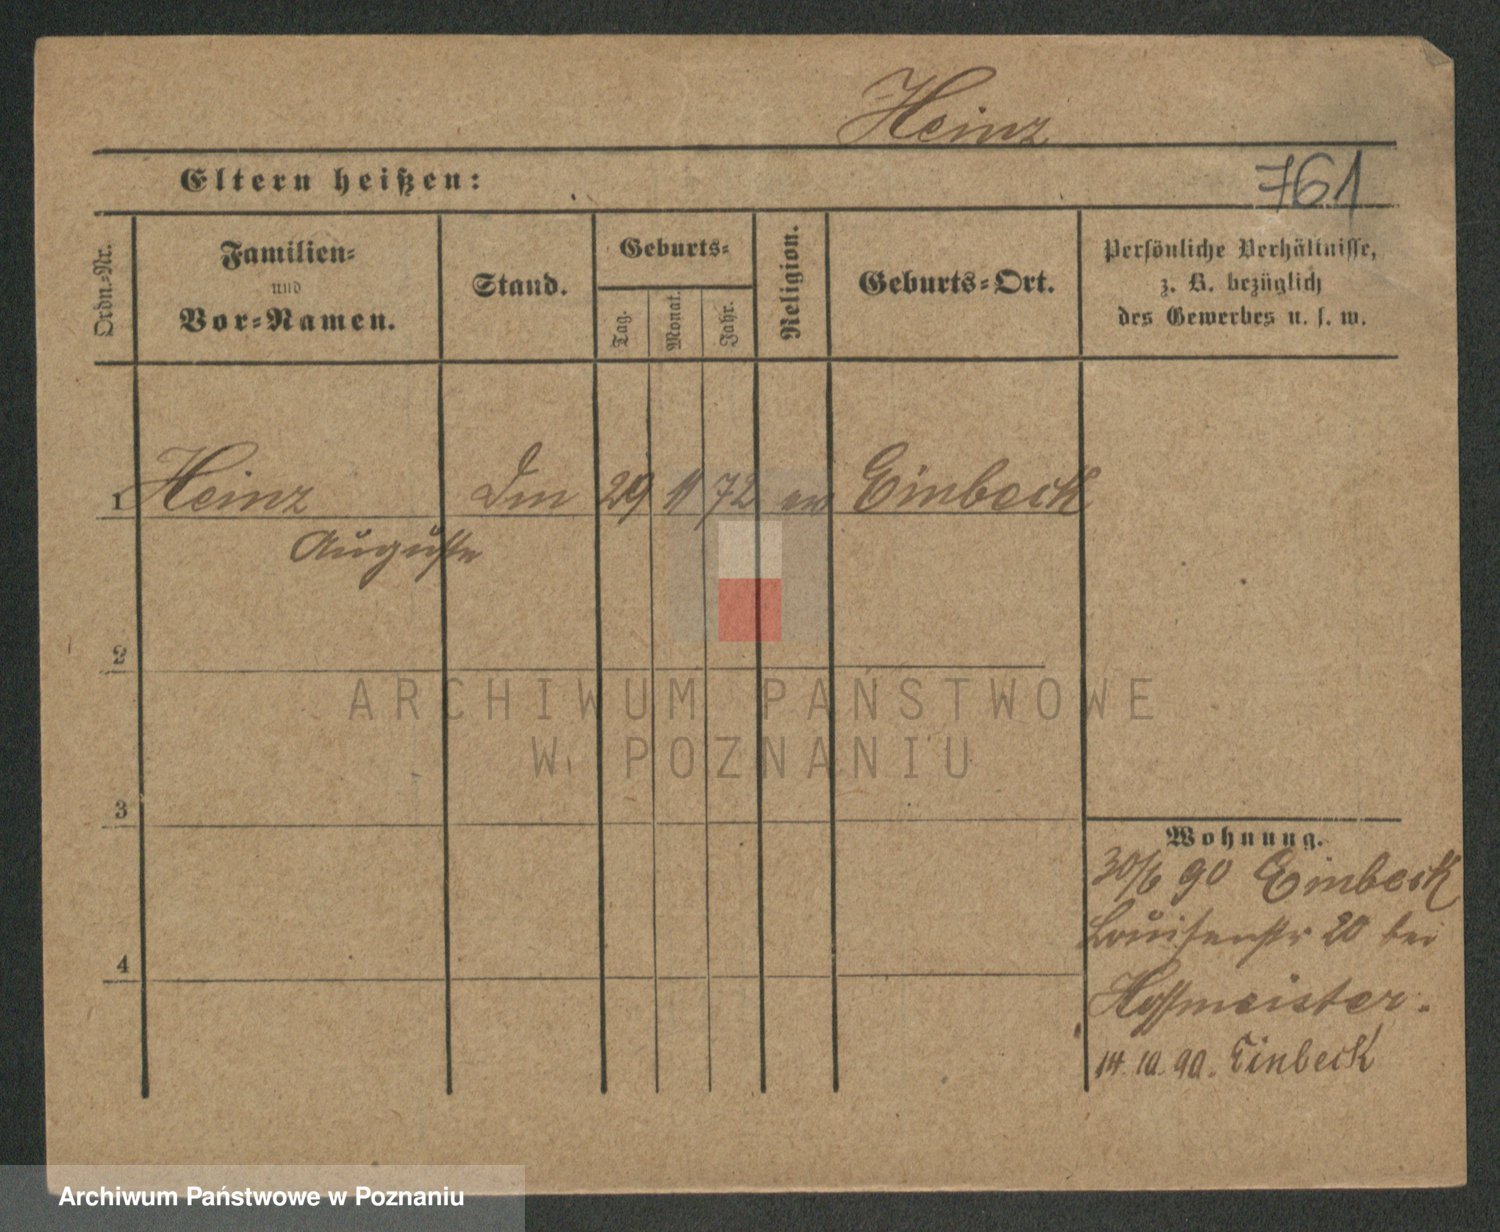 Heinz
761
Eltern heißen:
Ordn.-Nr.
Familien-
und
Vor-Namen.
Stand.
Geburts-
Tag.
Monat.
Jahr.
Religion.
Geburts-Ort.
Persönliche Verhältnisse,
z. B. bezüglich
des Gewerbes u. s. w.
1 Heinz 29 11 72 ev Einbeck
Auguste
2
3
4
Wohnung.
30/6 90 Einbeck
Louisenstr 20 bei
Hoffmeister.
14. 10. 90. Einbeck
ARCHIWUM PAŃSTWOWE
W POZNANIU
Archiwum Państwowe w Poznaniu